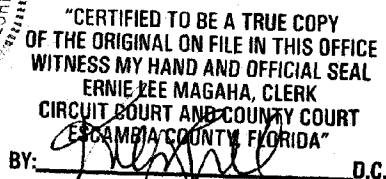 "CERTIFIED TO BE A TRUE COPY
OF THE ORIGINAL ON FILE IN THIS OFFICE
WITNESS MY HAND AND OFFICIAL SEAL
ERNIE LEE MAGAHA, CLERK
CIRCUIT COURT AND COUNTY COURT
ESCAMBIA COUNTY, FLORIDA"
BY: D.C.